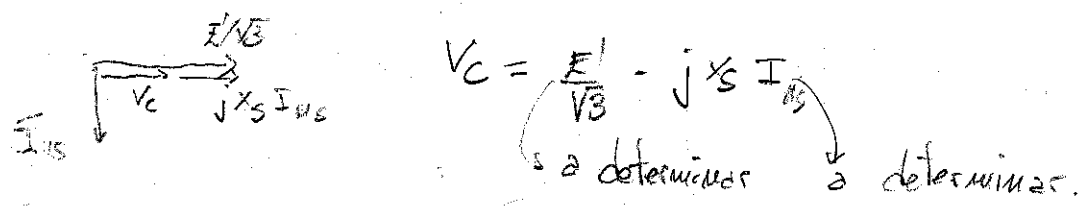 E'/√3
Vc
jXs I_NS
I_NS
Vc = E'/√3 - j Xs I_NS
a determinar
a determinar.